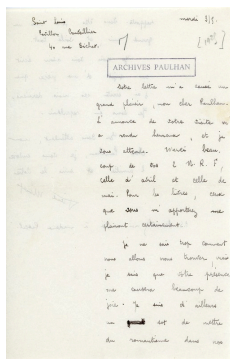 Saint Louis
mardi 2/5.
Pavillon
40 rue Bichat.
ARCHIVES PAULHAN
Votre lettre m'a causé un
grand plaisir, mon cher Paulhan.
L'annonce de votre visite m'
a rendu heureux, et je
vous attends. Merci beau-
coup de vos 2 N.R.F,
celle d'avril et celle de
mai. Pour les livres, ceux
que vous m'apporterez me
plairont certainement.
Je ne sais trop comment
nous allons nous trouver, mais
je sais que votre présence
me causera beaucoup de
joie. Je sais d'ailleurs
ne est de mettre
du romantisme dans nos